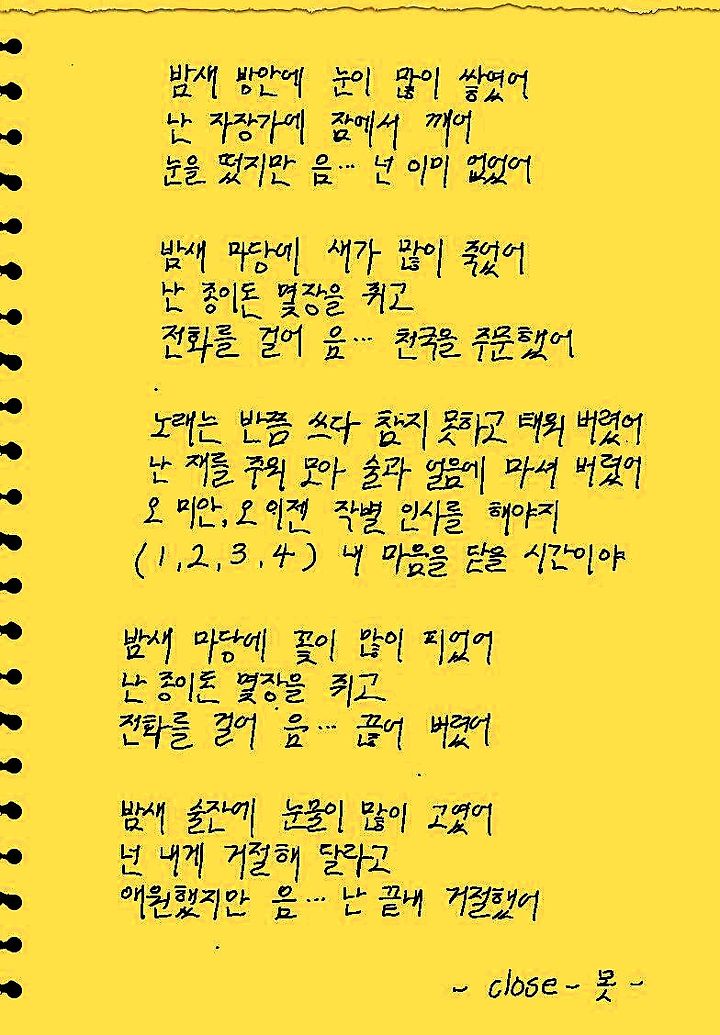 밤새 방안에 눈이 많이 쌓였어
난 자장가에 잠에서 깨어
눈을 떴지만 음... 넌 이미 없었어
밤새 마당에 새가 많이 죽었어
난 종이돈 몇장을 쥐고
전화를 걸어 음... 천국을 주문했어
노래는 반쯤 쓰다 참지 못하고 태워 버렸어
난 재를 주워 모아 술과 얼음에 마셔 버렸어
오 미안, 오 이젠 작별 인사를 해야지
(1,2,3,4) 내 마음을 닫을 시간이야
밤새 마당에 꽃이 많이 피었어
난 종이돈 몇장을 쥐고
전화를 걸어 음... 끊어 버렸어
밤새 술잔에 눈물이 많이 고였어
넌 내게 거절해 달라고
애원했지만 음... 난 끝내 거절했어
- close - 못 -